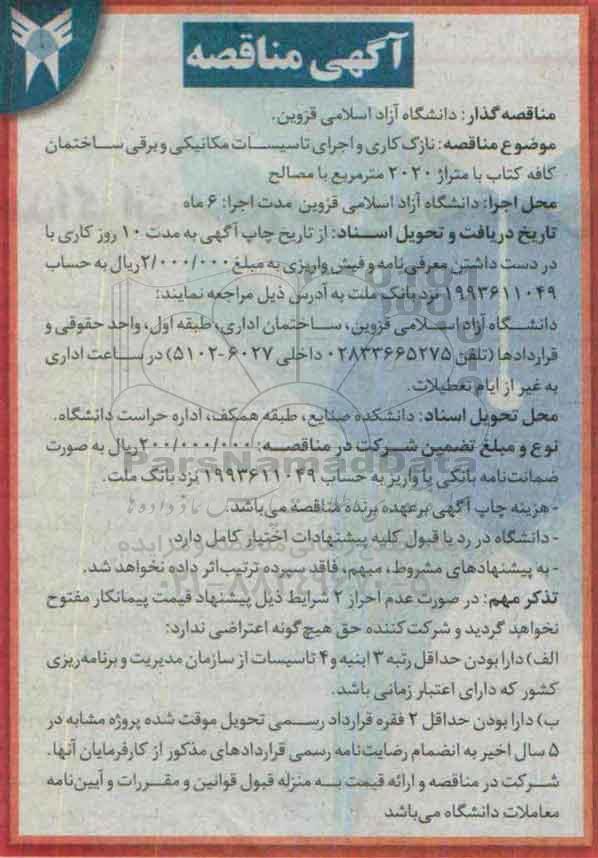 آگهی مناقصه
مناقصه‌گذار: دانشگاه آزاد اسلامی قزوین.
موضوع مناقصه: نازک‌کاری و اجرای تاسیسات مکانیکی و برقی ساختمان
کافه کتاب با متراژ ۲۰۲۰ مترمربع با مصالح
محل اجرا: دانشگاه آزاد اسلامی قزوین مدت اجرا: ۶ ماه
تاریخ دریافت و تحویل اسناد: از تاریخ چاپ آگهی به مدت ۱۰ روز کاری با
در دست داشتن معرفی‌نامه و فیش واریزی به مبلغ ۲/۰۰۰/۰۰۰ریال به حساب
۱۹۹۳۶۱۱۰۴۹ نزد بانک ملت به آدرس ذیل مراجعه نمایند:
دانشگاه آزاد اسلامی قزوین، ساختمان اداری، طبقه اول، واحد حقوقی و
قراردادها (تلفن ۰۲۸۳۳۶۶۵۲۷۵ داخلی ۶۰۲۷-۵۱۰۲) در ساعت اداری
به غیر از ایام تعطیلات.
محل تحویل اسناد: دانشکده صنایع، طبقه همکف، اداره حراست دانشگاه.
نوع و مبلغ تضمین شرکت در مناقصه: ۲۰۰/۰۰۰/۰۰۰ریال به صورت
ضمانت‌نامه بانکی یا واریز به حساب ۱۹۹۳۶۱۱۰۴۹ نزد بانک ملت.
ParsNamadData
- هزینه چاپ آگهی برعهده برنده مناقصه می‌باشد.
- دانشگاه در رد یا قبول کلیه پیشنهادات اختیار کامل دارد.
- به پیشنهادهای مشروط، مبهم، فاقد سپرده ترتیب‌اثر داده نخواهد شد.
تذکر مهم: در صورت عدم احراز ۲ شرایط ذیل پیشنهاد قیمت پیمانکار مفتوح
نخواهد گردید و شرکت‌کننده حق هیچ‌گونه اعتراضی ندارد:
الف) دارا بودن حداقل رتبه ۳ ابنیه و ۴ تاسیسات از سازمان مدیریت و برنامه‌ریزی
کشور که دارای اعتبار زمانی باشد.
ب) دارا بودن حداقل ۲ فقره قرارداد رسمی تحویل موقت شده پروژه مشابه در
۵ سال اخیر به انضمام رضایت‌نامه رسمی قراردادهای مذکور از کارفرمایان آنها.
شرکت در مناقصه و ارائه قیمت به منزله قبول قوانین و مقررات و آیین‌نامه
معاملات دانشگاه می‌باشد